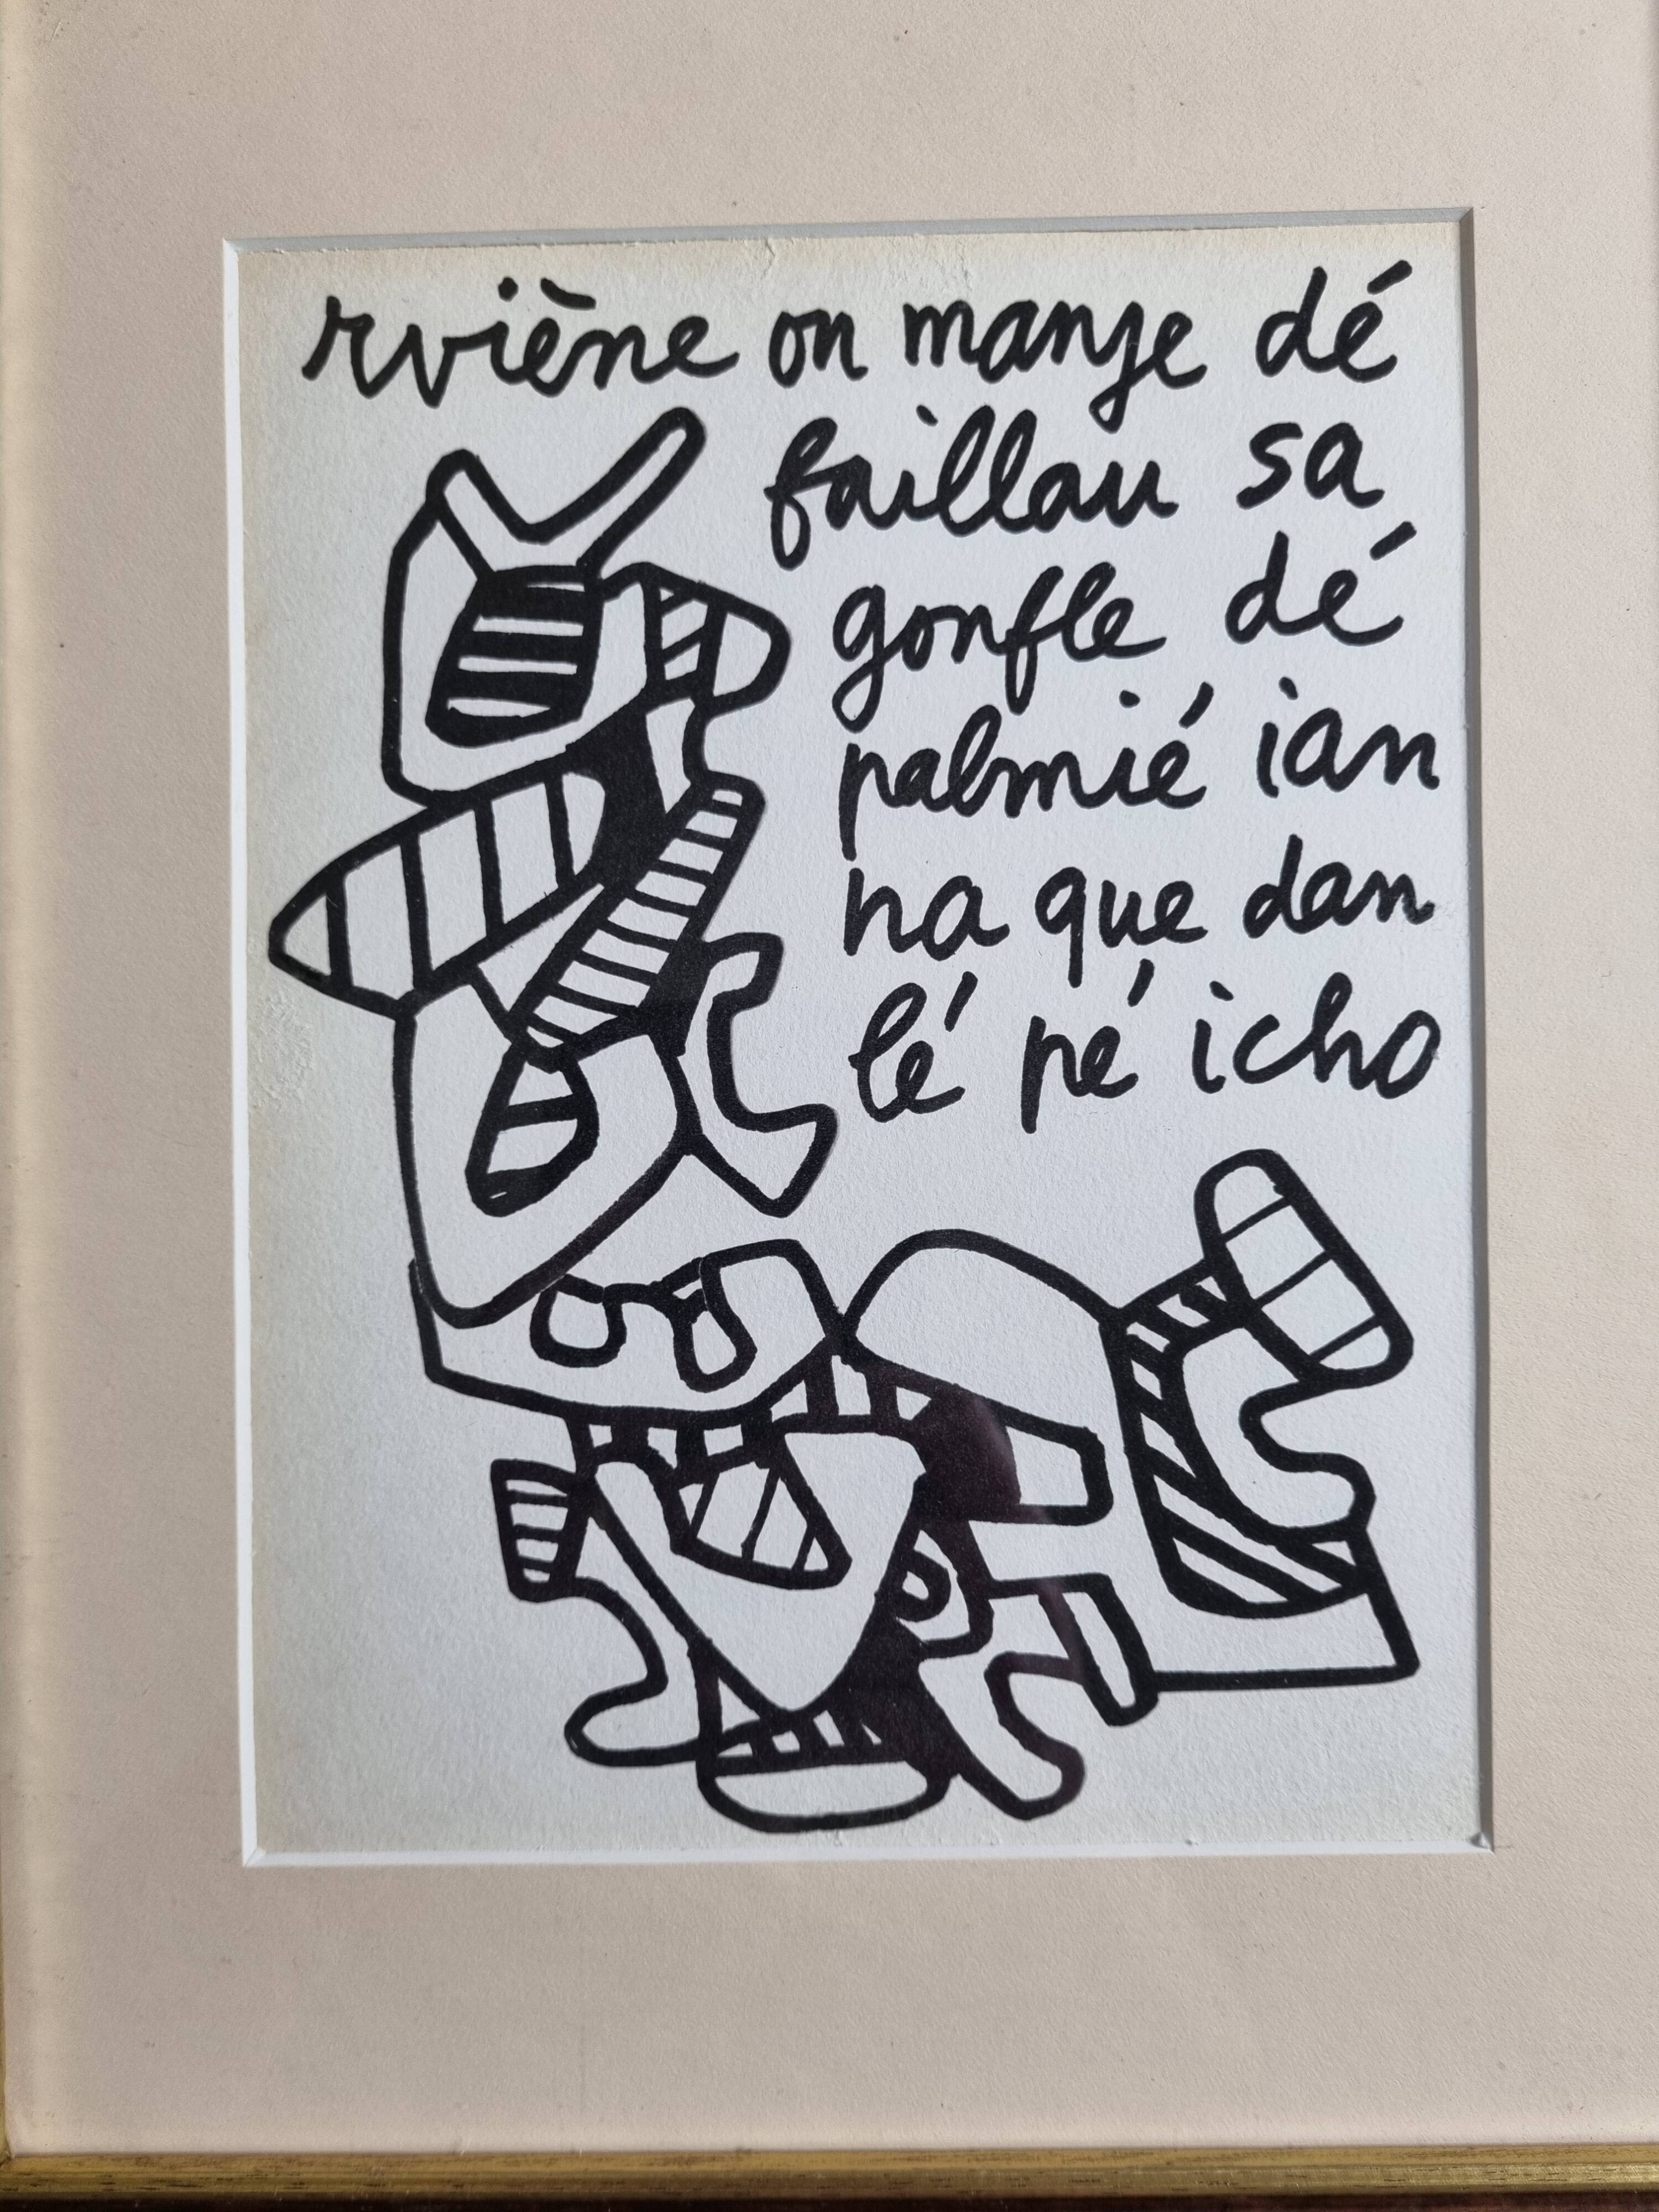 rviène on manje dé
faillau sa
gonfle dé
palmié ian
na que dan
lé pé icho